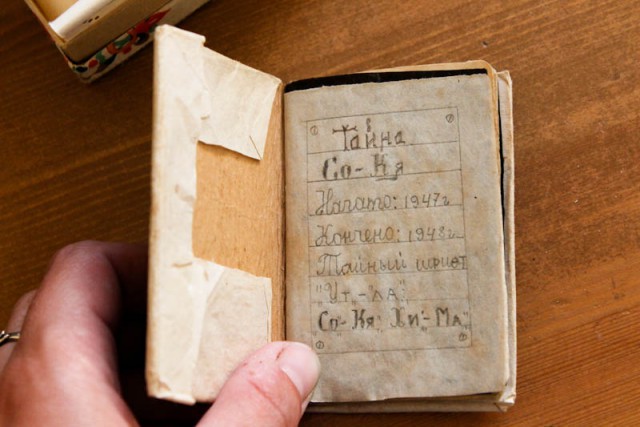 Тайна
Со-Кя
Начато: 1947г
Кончено: 1948г.
Тайный шрифт
"Ут"-"ла"
Со-"Кя" "Хи"-"Ма"